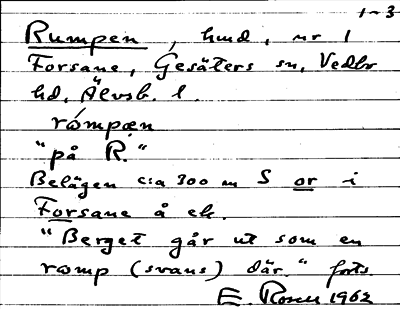 1-3
Rumpen, hmd, nr 1
Forsane, Gesäters sn, Vedbo
hd, Älvsb. l.
römpæn
"på R."
Belägen c:a 300 m S or i
Forsane å ek.
"Berget går ut som en
romp (svans) där." forts.
E. Rosen 1962